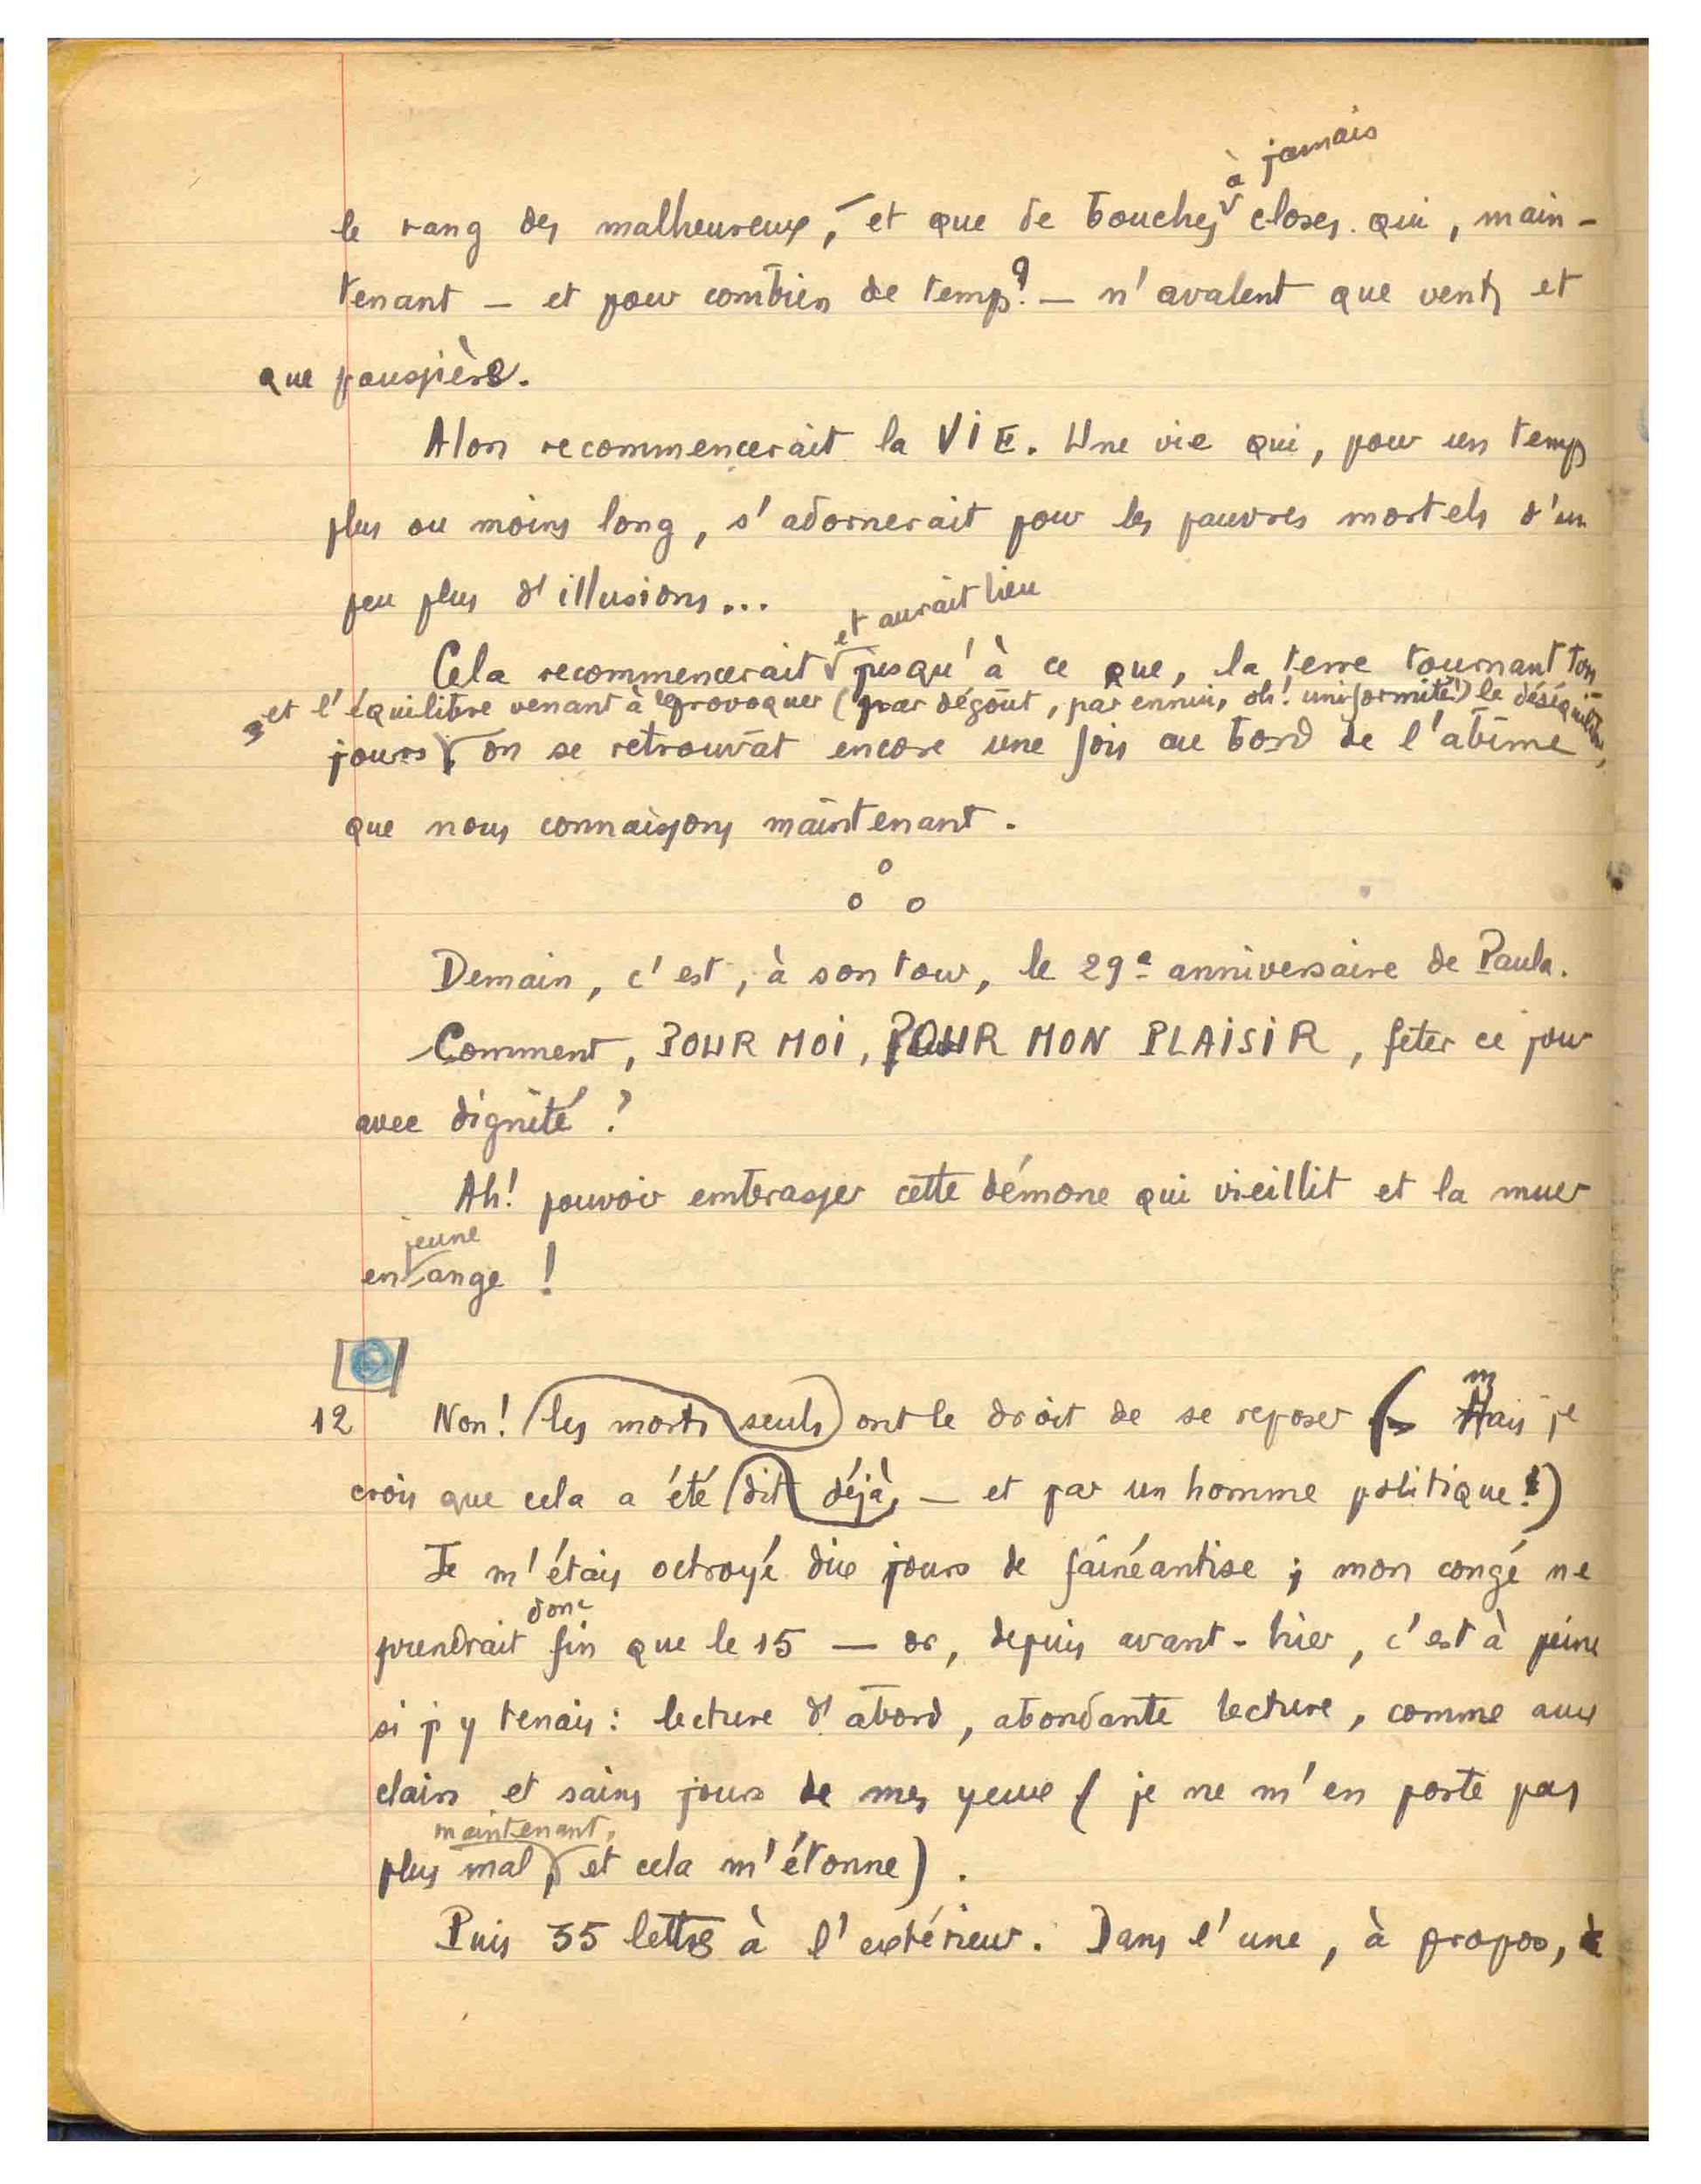 à jamais
le rang des malheureux, — et que de bouches closes qui, main-
tenant — et pour combien de temps? — n'avalent que vents et
que poussière.
Alors recommencerait la ViE. Une vie qui, pour un temps
plus ou moins long, s'adornerait pour les pauvres mortels d'un
peu plus d'illusions...
et aurait lieu
Cela recommencerait jusqu'à ce que, la terre tournant tou-
et l'équilibre venant à provoquer (par dégoût, par ennui, oh! uniformité!) le déséquilibre,
jours, on se retrouvât encore une fois au bord de l'abîme
que nous connaissons maintenant.
o
o o
Demain, c'est, à son tour, le 29e anniversaire de Paula.
Comment, POUR MOi, POUR MON PLAiSiR, fêter ce jour
avec dignité?
Ah! pouvoir embrasser cette démone qui vieillit et la muer
jeune
en ange!
12 Non! les morts seuls ont le droit de se reposer (mais je
crois que cela a été dit déjà, — et par un homme politique!)
Je m'étais octroyé dix jours de fainéantise; mon congé ne
donc
prendrait fin que le 15 — or, depuis avant-hier, c'est à peine
si j'y tenais: lecture d'abord, abondante lecture, comme aux
clairs et sains jours de mes yeux (je ne m'en porte pas
maintenant,
plus mal, et cela m'étonne).
Puis 35 lettres à l'extérieur. Dans l'une, à propos,